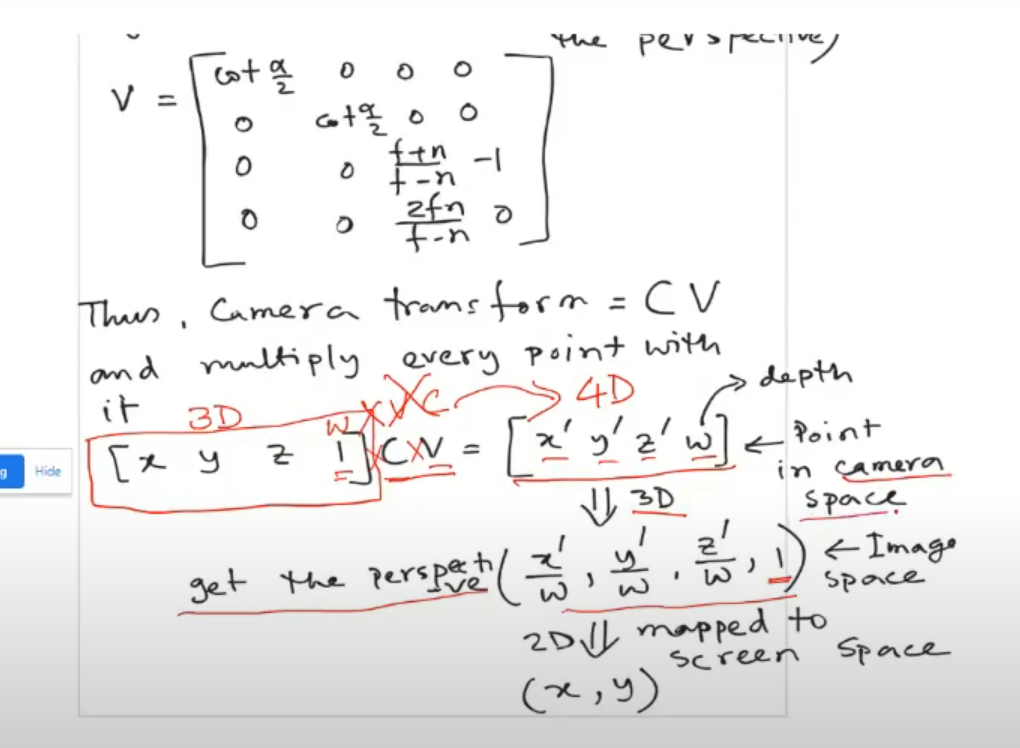 the perspective)
V = [cot α/2 0 0 0
0 cot α/2 0 0
0 0 f+n/f-n -1
0 0 2fn/f-n 0]
Thus, Camera transform = CV
and multiply every point with
it 3D 4D → depth
[x y z 1] CV = [x' y' z' w] ← Point
in camera
space
g Hide
⇓ 3D
get the perspective (x'/w, y'/w, z'/w, 1) ← Image
space
2D ⇓ mapped to
screen space
(x, y)